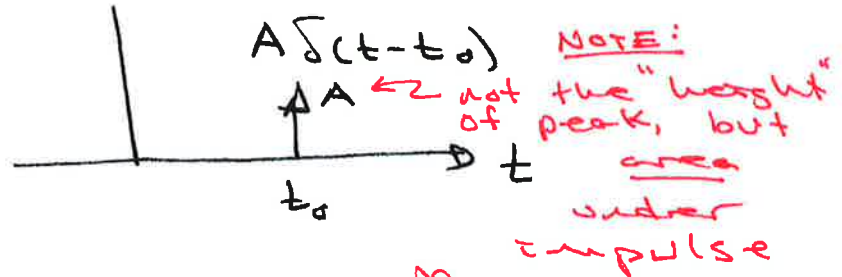 Aδ(t-t₀)
NOTE:
A ← not the "height"
of peak, but
area
under
impulse
t
t₀